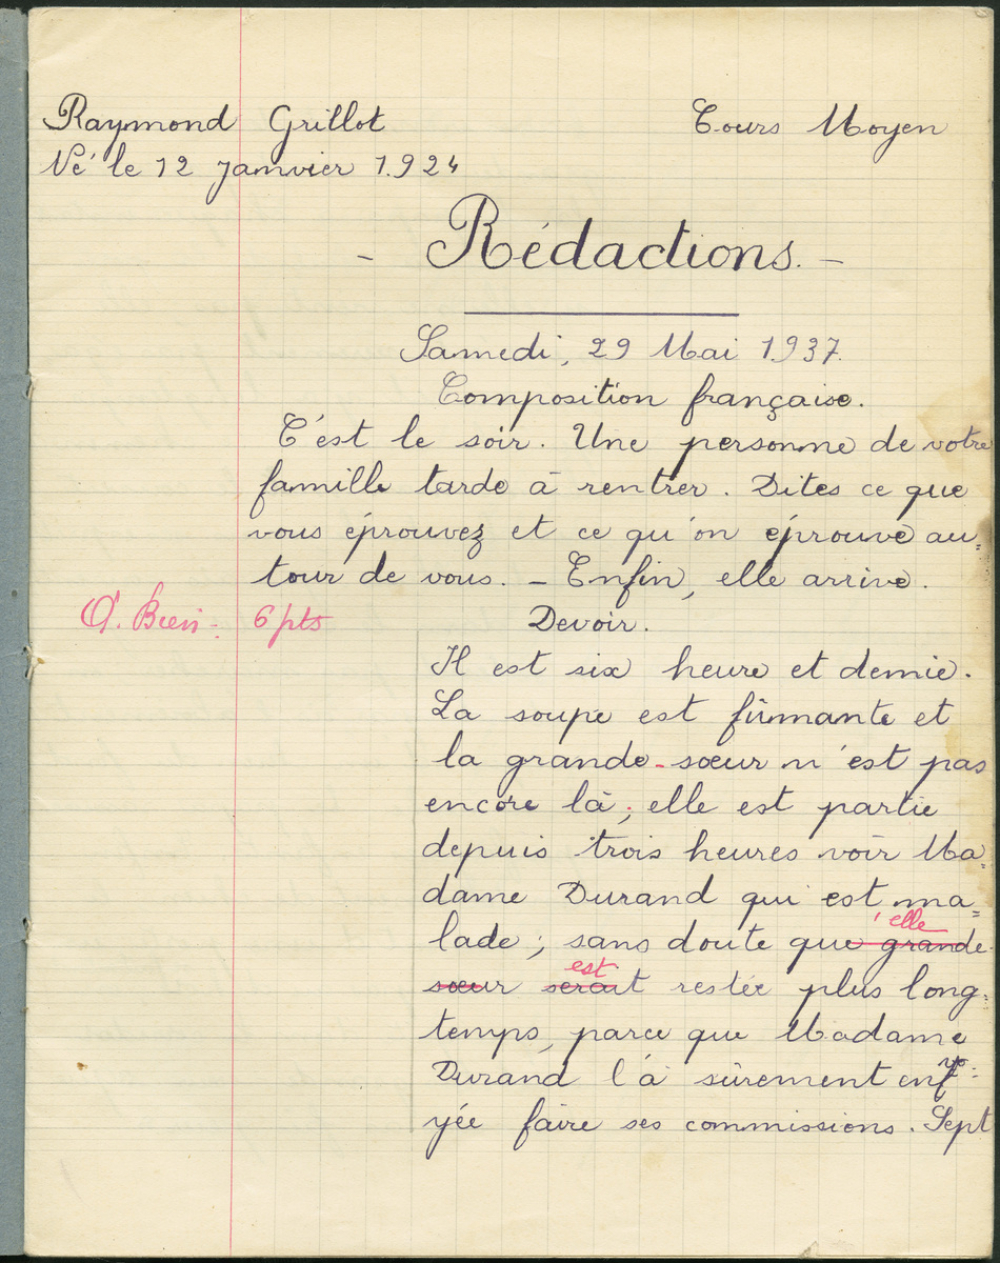 Raymond Grillot Cours Moyen
Né le 12 Janvier 1924
- Rédactions. -
Samedi, 29 Mai 1937.
Composition française.
C'est le soir. Une personne de votre
famille tarde à rentrer. Dites ce que
vous éprouvez et ce qu'on éprouve au=
tour de vous. - Enfin, elle arrive.
A. Bien - 6 pts Devoir.
Il est six heure et demie.
La soupe est fûmante et
la grande-sœur n'est pas
encore là; elle est partie
depuis trois heures voir Ma=
dame Durand qui est ma=
' elle
lade; sans doute que grande
est
sœur serait restée plus long=
temps, parce que Madame
Durand l'a sûrement envo=
yée faire ses commissions. Sept